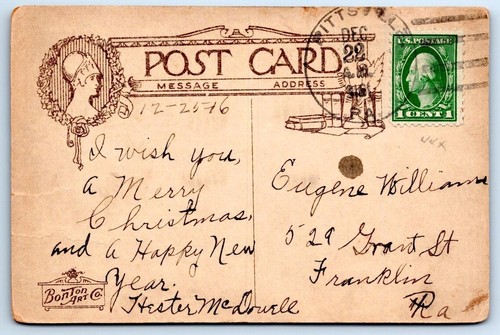 POST CARD
MESSAGE ADDRESS
DEC
22
PA
U.S. POSTAGE
1 CENT 1
12-25-16
I wish you,
a Merry
Christmas,
and a Happy New
Year.
Hester McDowell
Eugene Williams
529 Grant St
Franklin
Pa
BONTON
ART CO.